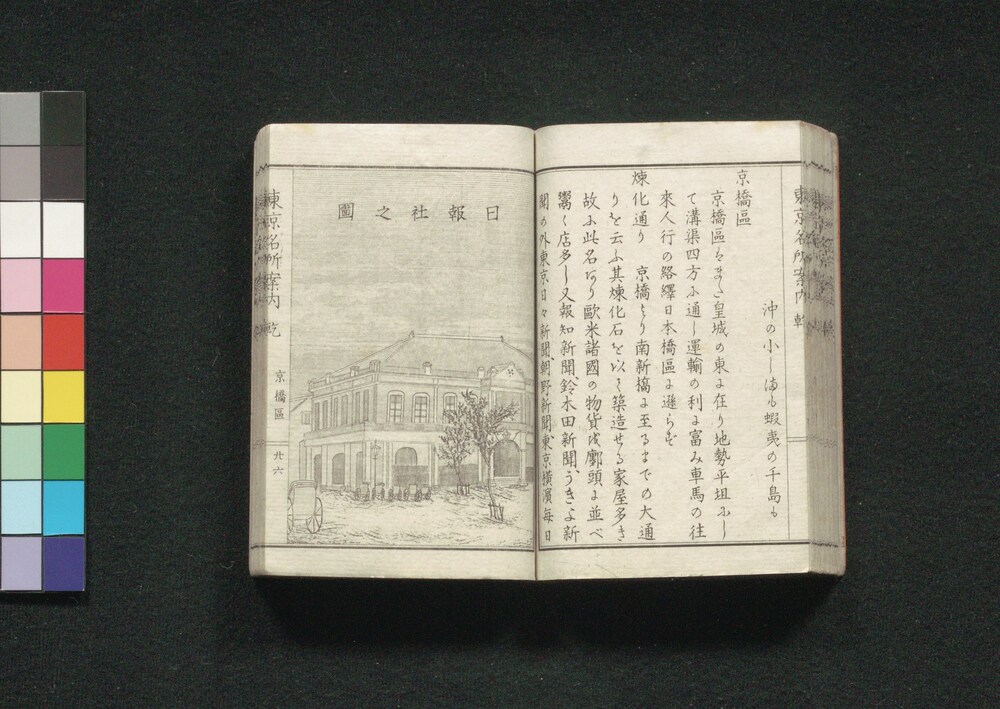 東京名所案內 乾
沖の小しまも蝦夷の千島も
京橋區
京橋區ハまさ皇城の東に在り地勢平坦にし
て溝渠四方に通し運輸の利に富み車馬の往
來人行の絡繹日本橋區に遜らず
煉化通り 京橋より南新橋に至るまでの大通
りを云ふ其煉化石を以て築造せる家屋多き
故に此名あり歐米諸國の物貨を鄽頭に並べ
鬻く店多し又報知新聞、鈴木田新聞、うきよ新
聞の外東京日々新聞、朝野新聞、東京橫濱每日
日報社之圖
東京名所案內 乾
京橋區
廿六